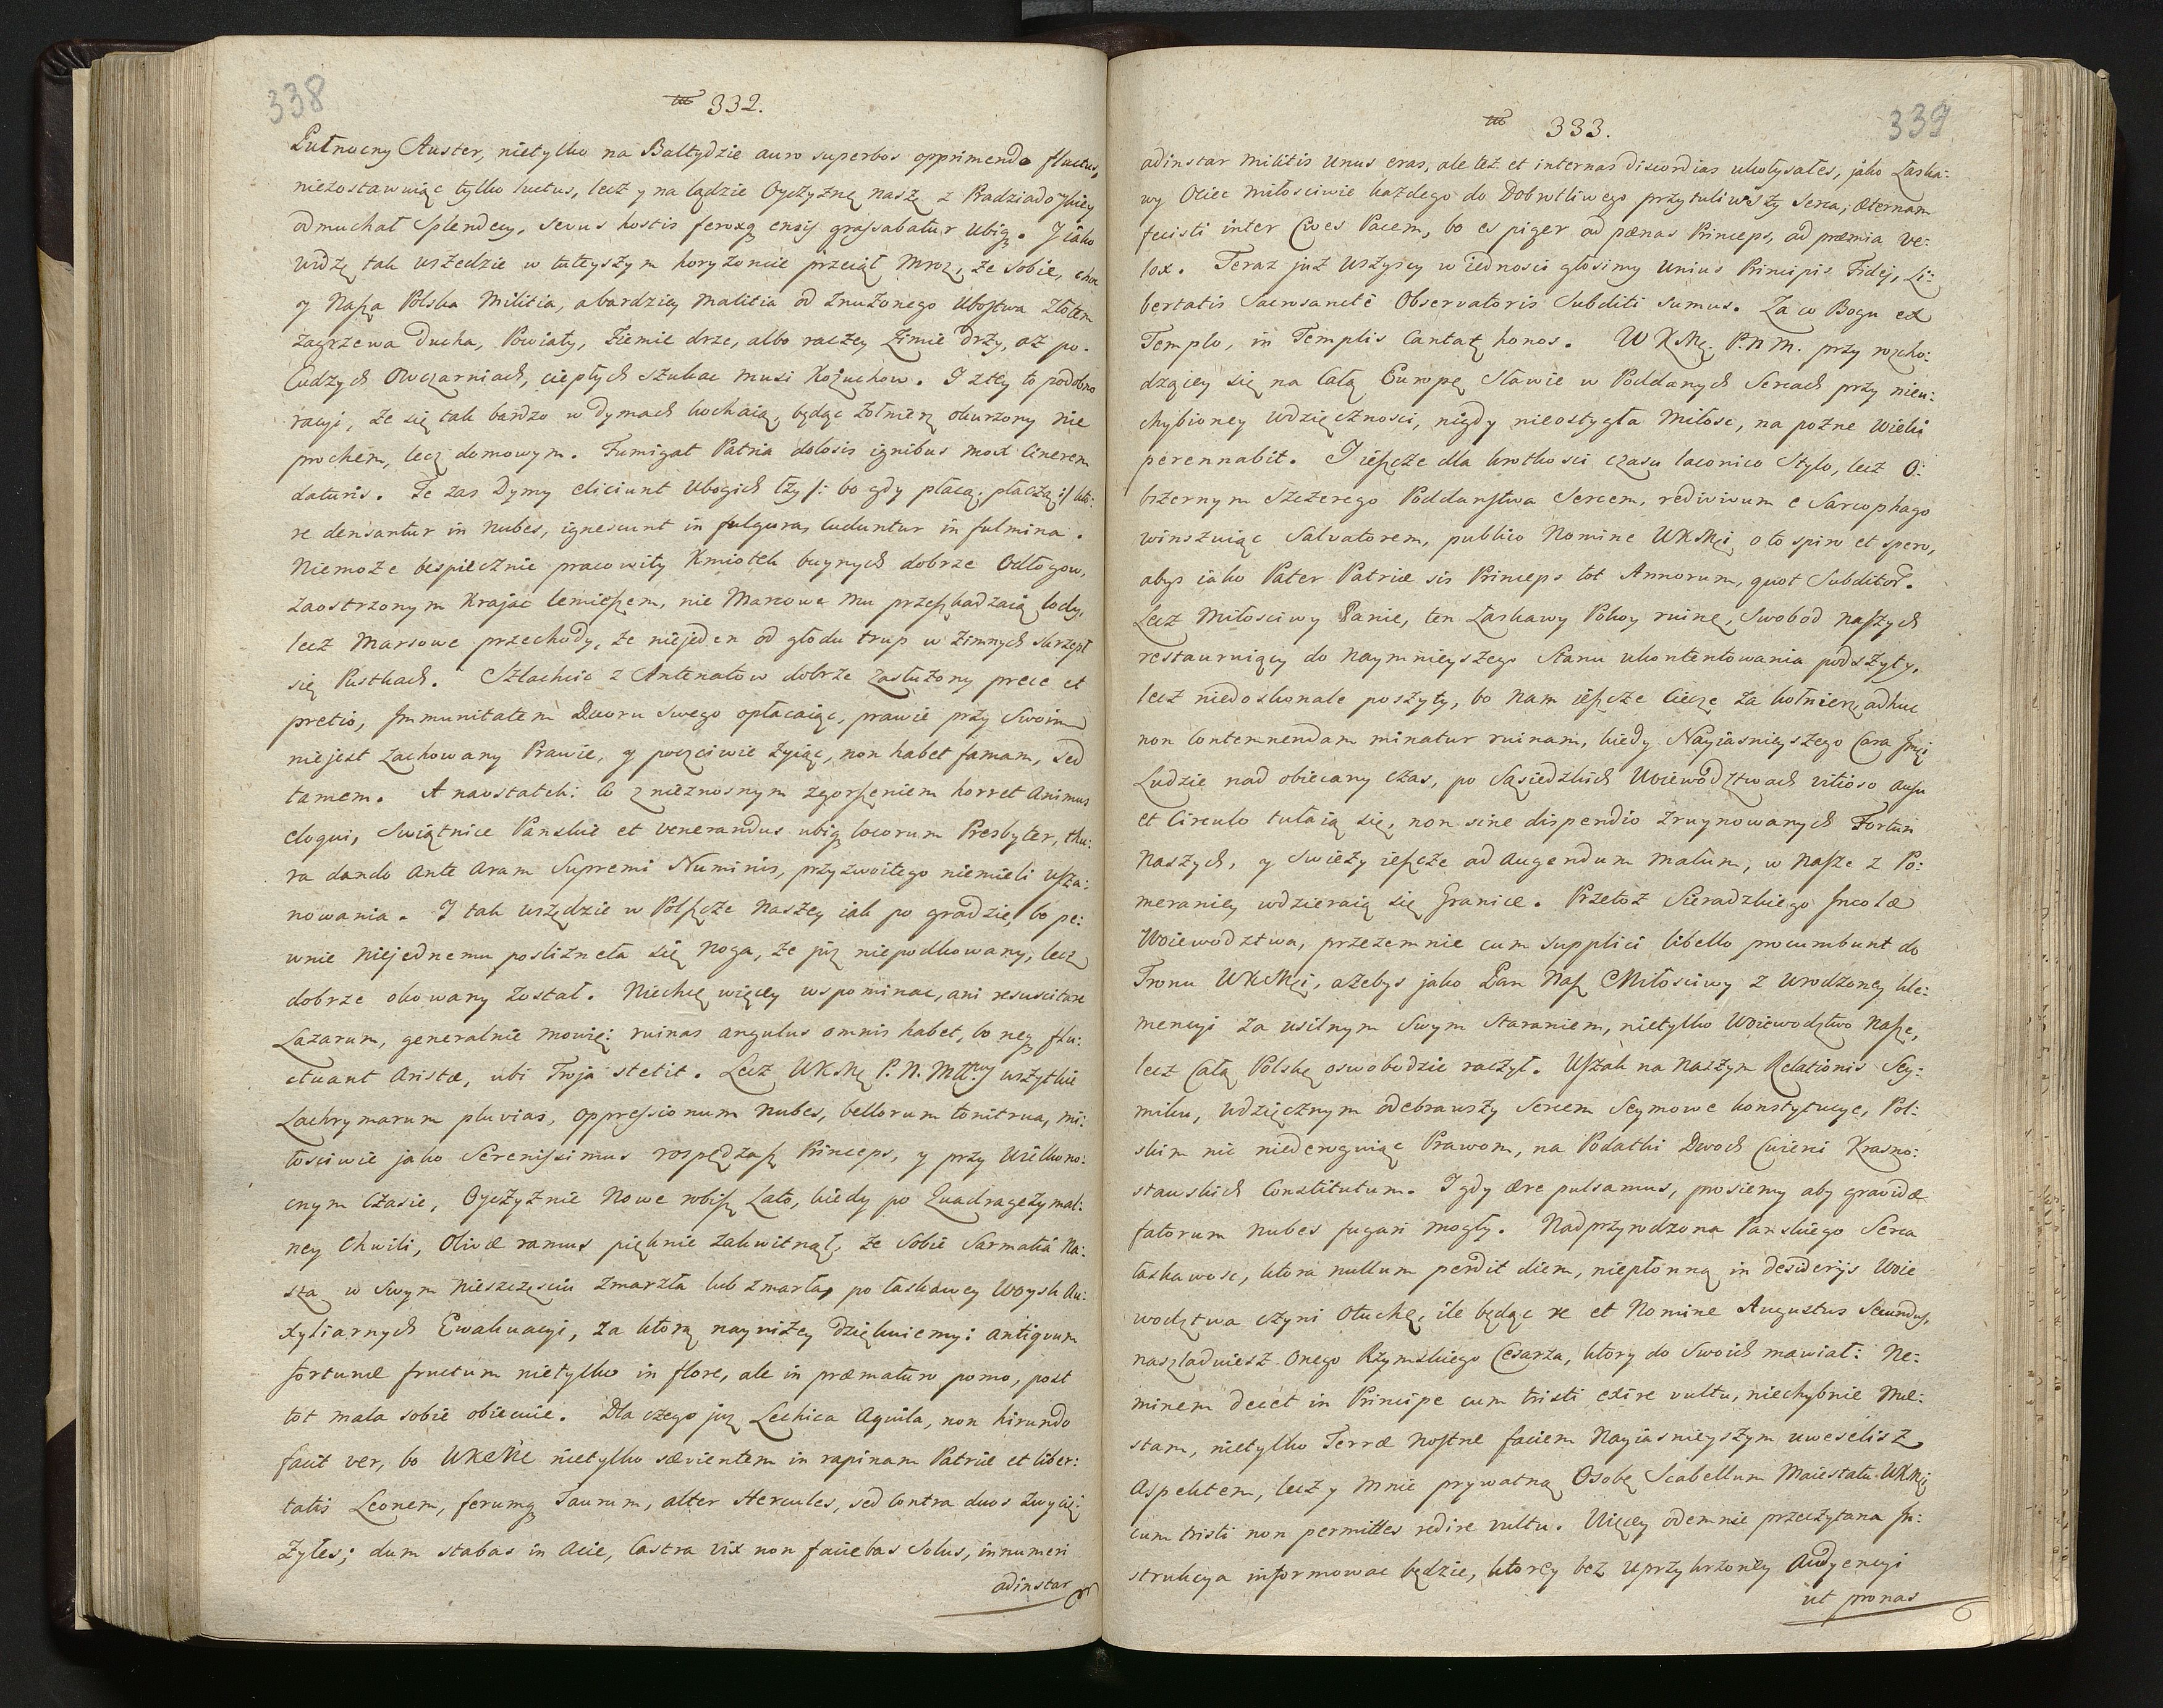 338
332.
Pułnocny Auster, nietylko na Baltydzie auro superbos opprimendo fluctus,
niezostawuiąc tylko luctus, lecz y na lądzie Oyczyznę naszę z Pradziadoskiey
odmuchał Splendecy, sevus hostis feroxq ensis grassabatur ubiq. J iako
widzę tak wszedzie w tuteyszym horyzoncie przeciął mroz, że sobie,
y Nasza Polska Militia, a bardziey malitia od znużonego Ubostwa złotem
zagrzewa Ducha, Powiaty, Ziemie drze, albo raczey Zimie drzy, aż po
Cudzych Owczarniach, ciepłych szukac musi Kożuchow. J z tey to podobno
racyi, że się tak bardzo w dymach kochaią, będąc żołnierz okurzony nie
prochem, lecz domowym. Fumigat Patria dolosis ignibus mox Cinerem
daturis. Te zas Dymy eliciunt Ubogich łzy /: bo gdy płacą, płaczą :/ kto:
re densantur in nubes, ignescunt in fulgura, Cuduntur in fulmina.
Niemoże bespiecznie pracowity Kmiotek buynych dobrze Odłogow,
zaostrzonym Krajac lemieszem, nie Marcowe mu przeszkadzaią lody,
lecz Marsowe przechody, że niejeden od głodu trup w zimnych skrzepł
się Pustkach. Szlachcic z Antenatow dobrze zasłużony prece et
pretio, Immunitatem Dworu Swego opłacaiąc, prawie przy Swoim
niejest zachowany Prawie, y poczciwie żyiąc, non habet famam, sed
tamem. A naostatek: Co z nieznosnym zgorszeniem horret Animus
eloqui, Swiątnice Panskie et venerandus ubiq locorum Presbyter, thu:
ra dando ante aram Supremi Numinis, przyzwoitego niemieli usza:
nowania. J tak wszędzie w Polszcze naszey iak po gradzie, bo pe:
wnie niejednemu poslizneła się noga, że już niepodkowany, lecz
dobrze okowany został. Niechcę więcey wspominac, ani resuscitare
Lazarum, generalnie mowię: ruinas angulus omnis habet, bo neq flu:
ctuant Aristæ, ubi Troja stetit. Lecz WKMę P.N.Młłwy wszytkie
Lachrymarum pluvias, oppressionum nubes, bellorum tonitrua, mi:
łosciwie jako Serenissimus rozpędzasz Princeps, y przy Wielkono:
cnym Czasie, Oyczyznie Nowe robisz Lato, kiedy po Quadragezymal:
ney Chwili, Olivæ ramus pięknie zakwitnął, że sobie Sarmatia Na:
sza w Swym nieszczęsciu zmarzła lub zmarła, po łaskawey Woysk Au:
xyliarnych Ewakuacyi, za ktorą nayniżey dziękuiemy: antiquum
fortunæ fructum nietylko in flore, ale in præmaturo pomo, post
tot mala sobie obiecuie. Dla czego już Lechica Aquila, non hirundo
facit ver, bo WKMc nietylko sævientem in rapinam Patriæ et liber:
tatis Leonem, ferumq Taurum, alter Hercules, sed contra duos zwycię:
żyłes; dum stabas in Acie, Castra vix non faciebas Solus, innumeri
adinstar
339
333.
adinstar Militis Unus eras, ale też et internas discordias ukołysałes, jako Łaska:
wy Ociec miłosciwie każdego do Dobrotliwego przytuliwszy Serca; æternam
fecisti inter Cives Pacem, bo es piger ad pænas Princeps, ad præmia ve:
lox. Teraz już wszyscy w iednosci głosimy Unius Principis Fidej, Li:
bertatis Sacrosanctæ Observatoris Subditi sumus. Za co Bogu ex
Templo, in Templis Cantat honos. WKMę. P.N.M. przy rozcho:
dzącey się na Całą Europę Sławie w Poddanych Sercach przy nieu:
chybioney wdzięcznosci, nigdy nieostygła Miłosc, na pozne Wieki
perennabit. J ieszcze dla krotkosci czasu laconico Stylo, lecz O:
bszernym Szczerego Poddanstwa Sercem, redivivum e Sarcophago
winszuiąc Salvatorem, publico Nomine WKMci oto spiro et spero,
abys iako Pater Patriæ sis Princeps tot Annorum, quot Subditor.
Lecz Miłosciwy Panie, ten Łaskawy Pokoy ruinę, Swobod naszych
restauruiący do naymnieyszego Stanu ukontentowania podszyty,
lecz niedoskonale poszyty, bo nam ieszcze Ciecze za kołnierz adhuc
non Contemnendam minatur ruinam, kiedy Nayiasnieyszego Cara Jmci
Ludzie nad obiecany czas, po Sąsiedzkich Woiewodztwach vitioso ausu
et Circulo tułaią się, non sine dispendio zruynowanych Fortun
Naszych, y Swieży ieszcze ad augendum malum, w nasze z Po:
meraniey wdzieraią się Granice. Przetoż Sieradzkiego Incolæ
Woiewodztwa, przezemnie cum supplici libello procumbunt do
Tronu WKMci, ażebys jako Pan Nasz Miłosciwy z wrodzoney kle:
mencyi za usilnym Swym Staraniem, nietylko Woiewodztwo Nasze,
lecz Całą Polskę oswobodzic raczył. Wszak na naszym Relationis Sey:
miku, wdzięcznym odebrawszy Sercem Seymowe konstytucye, Pol:
skim nic niederoguiąc Prawom, na Podatki Dwoch Cwierci Krasno:
stawskich Constitutum. J gdy ære pulsamus, prosiemy aby gravidæ
fatorum nubes fugari mogły. Nadprzyrodzona Panskiego Serca
łaskawosc, ktora nullum perdit diem, niepłonną in desiderijs Woie
wodztwa czyni otuchę, ile będąc re et Nomine Augustus Secundus,
naszladuiesz onego Rzymskiego Cesarza, ktory do Swoich mawiał: Ne:
minem decet in Principe cum tristi exire vultu, niechybnie mæ:
stam, nietylko Terræ nostræ faciem Nayiasnieyszym uweselisz
Aspektem, lecz y mnie prywatną Osobę Scabellum Maiestatu WKMci
cum tristi non permittes redire vultu. Więcey odemnie przeczytana In:
strukcya informowac będzie, ktorey bez uprzykrzoney Audyencyi
ut pronas